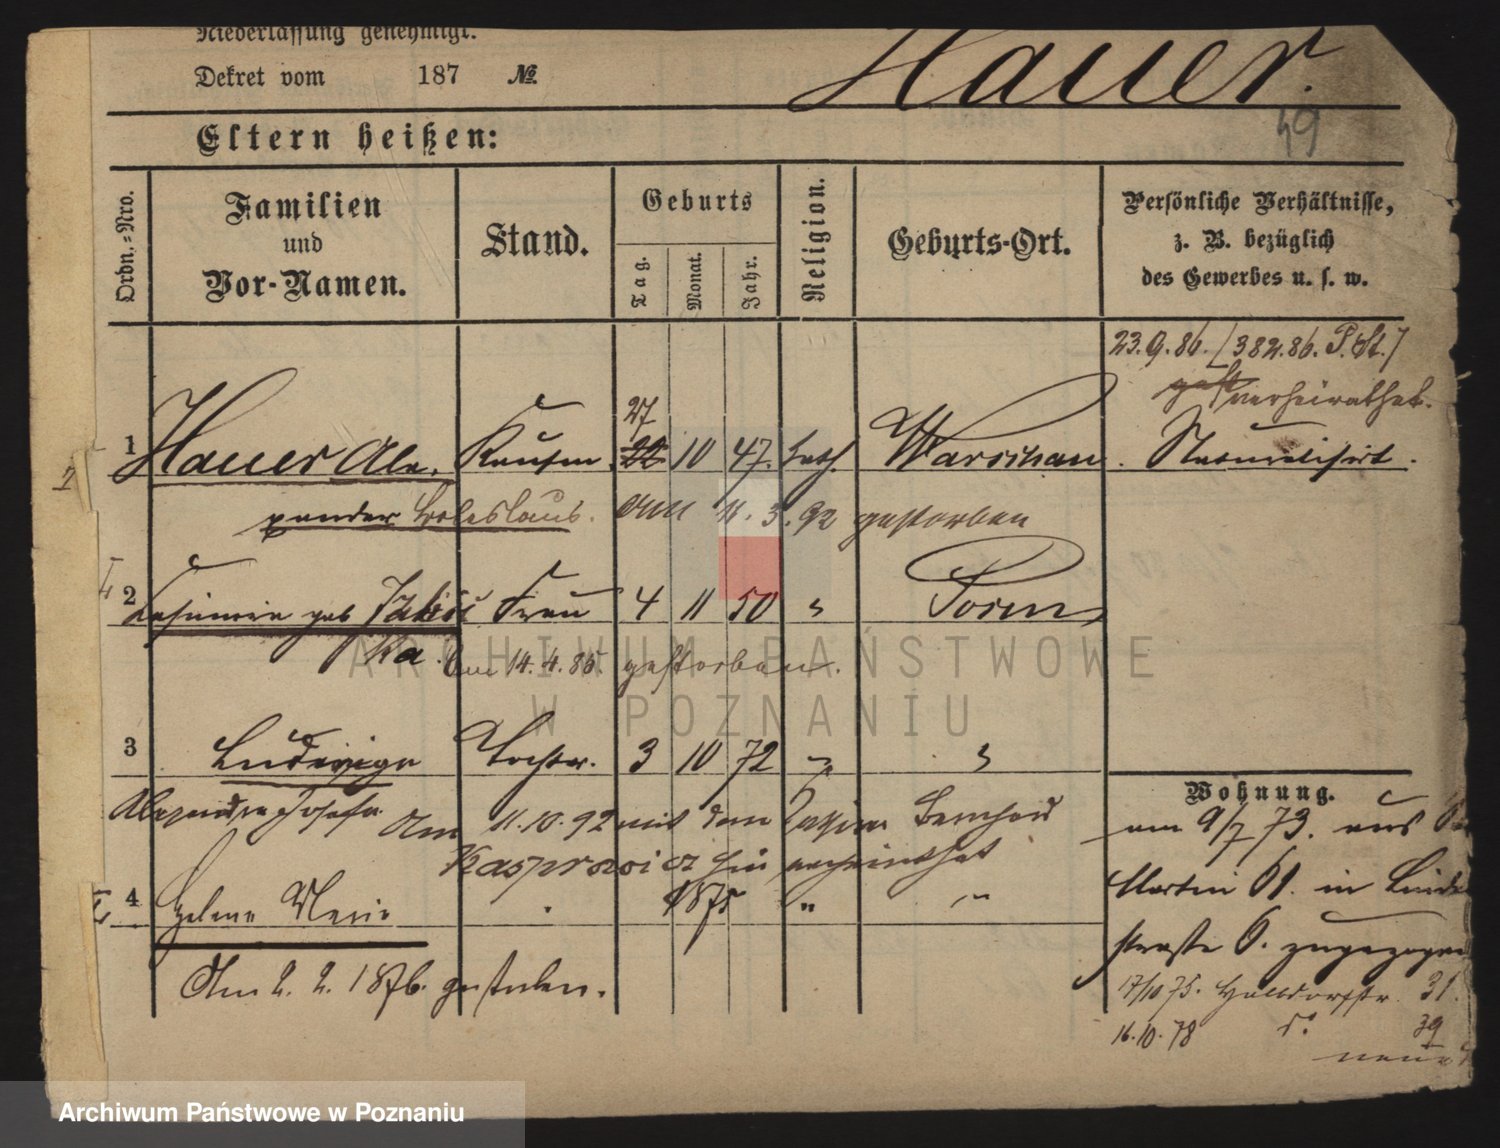 Niederlassung genehmigt.
Dekret vom 187 №
Hauer.
49
Eltern heißen:
Ordn.-Nro.
Familien
und
Vor-Namen.
Stand.
Geburts
Tag.
Monat.
Jahr.
Religion.
Geburts-Ort.
Persönliche Verhältnisse,
z. B. bezüglich
des Gewerbes u. s. w.
23.9.86. [382.86. P. St.]
verheirathet.
27
1 Hauer Ale- Kaufm. 22 10 47. kath. Warschau. Naturalisirt.
xander Boleslaus. am 11.3.92 gestorben
2 Casimira geb Jakic Frau 4 11 50 " Posen
ka. am 14.4.86 gestorben.
3 Ludwiga Tochter. 3 10 72 " "
Alexandra Josefa Am 11.10.92 mit dem Bernhard
Kasprowicz hier verheirathet
4 Helene Marie " 1875 " "
Am 2. 2. 1876. gestorben.
Wohnung.
am 9/7 73. aus St
Martin 61. in Linden
straße 6. zugezogen
17/10 75. Halldorfstr. 31.
16.10.78 do 39
neu
ARCHIWUM PAŃSTWOWE
W POZNANIU
Archiwum Państwowe w Poznaniu